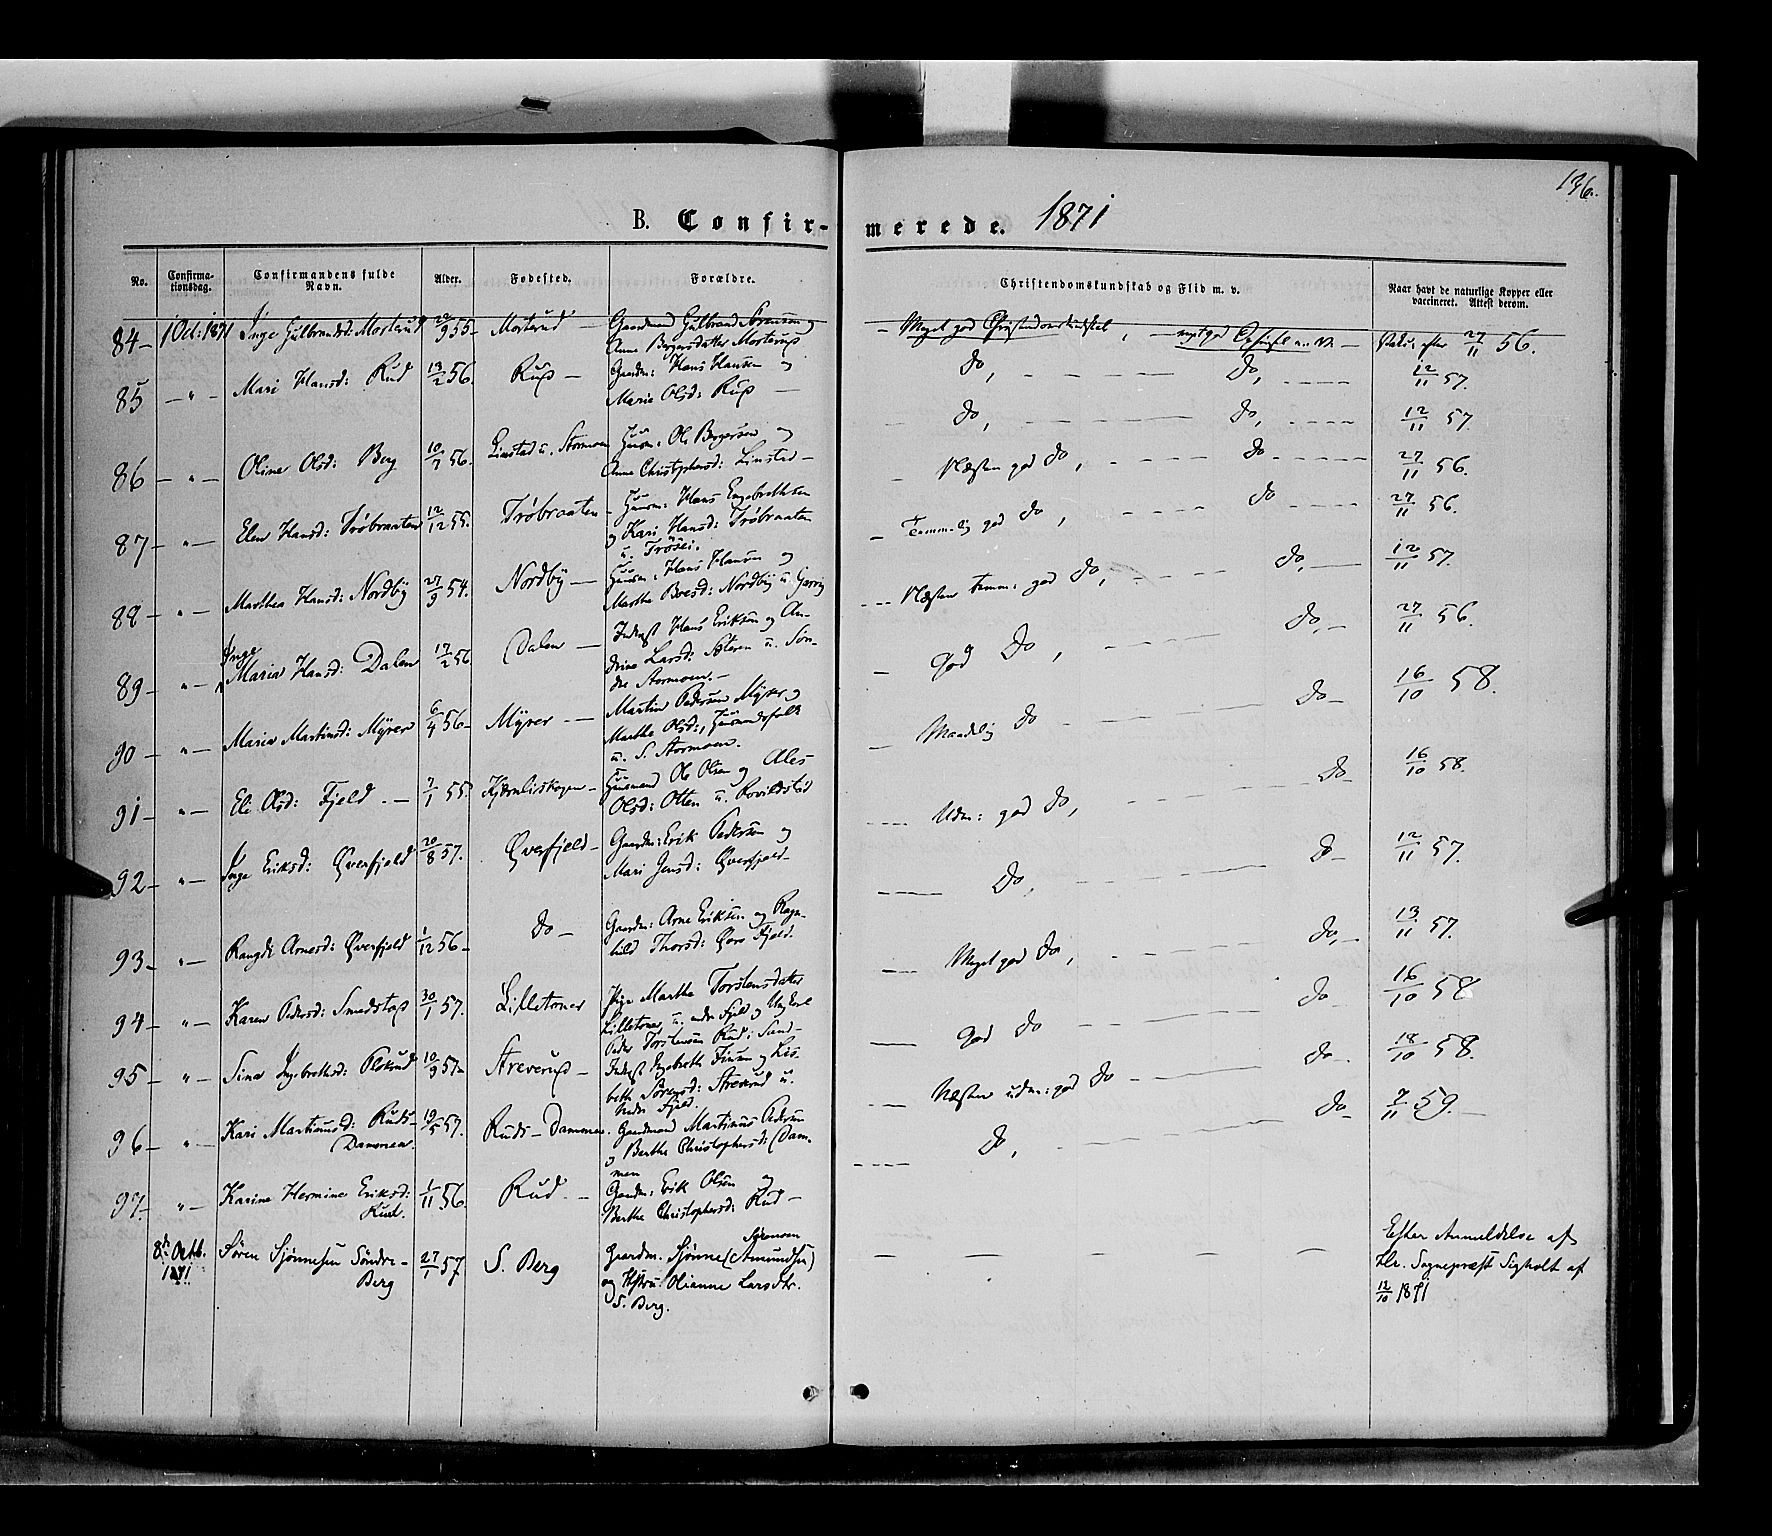 136.
B. Confir- merede. 1871
No. Confirma- tionsdag. Confirmandens fulde Navn. Alder. Fødested. Forældre. Christendomskundskab og Flid m. v. Naar havt de naturlige Kopper eller vaccineret. Attest derom.
84 – 1 Oct: 1871 Inge Gulbrandsd: Morterud 9 55 – Morterud – Gaardmand Gulbrand Sørensen og – Meget god Christendomskundskab, – meget god – 27/11 56.
Anne Bergersdatter Morterud
85 – " – Mari Hansd: Rud 13/2 56. Rud – Gaardm: Hans Hansen og do, – do, 12/11 57.
Marie Olsd: Rud –
86 – " – Oline Olsd: Berg 10/7 56. Linstad u. Stormoen Huusm: Ole Bergersen og do, – do, 12/11 57.
Anne Christophersd: Linstad –
87 – " – Elen Hansd: Trøbraaten 12/12 55. Trøbraaten – Huusm: Hans Engebrethsen – Næsten god do, – do 27/11 56.
og Kari Hansd: Trøbraaten
u. Trøsei.
88 – " – Marthea Hansd: Nordby 27/9 54. Nordby – Huusm: Hans Hansen og – Temmelig god do, – do 27/11 56.
Marthe Boesd: Nordby u.
89 – " – Inge Maria Hansd: Dalen 17/2 56 Dalen – Inderst Hans Eriksen og An- – Næsten temm: god do, – do, 12/11 57.
drine Larsd: u. Søn-
dre Stormoen. –
90 – " – Maria Martinsd: Myrer 6/4 56 – Myrer – Martin Pedersen Myrer og – god do, – do, 27/11 56.
Marthe Olsd:, Huusmandsfolk
u. S. Stormoen.
91 – " – Eli Olsd: Fjeld – 7/1 55. Kjærnliskogen – Huusmand Ole Olsen og Ales – Maadelig do – do – 16/10 58.
Olsd: Otten u.
92 – " – Inge Eriksd: Øverfjeld 20/8 57. Øverfjeld – Gaardm: Erik Pedersen og – Udm: god do, – do – 16/10 58.
Mari Jensd: Øverfjeld –
93 – " – Rangdi Arnesd: Øverfjeld 1/12 56 – do – Gaardm: Arne Eriksen og Ragn- – do, – do – 12/11 57.
hild Thorsd: Øvre Fjeld.
94 – " – Karen Pedersd: Smedstad 30/1 57. Lilletoner Pige Marthe Torstensdatter – Meget god do, – do, – 13/11 57.
Lilletoner u. nedre Fjeld og Ungkarl
Peder Torstensen Rud i Land –
95 – " – Sina Ingebrethsd: Plskrud 10/9 57 – Streverud – Inderst Ingebreth Finsen og Lis- – god do – do – 16/10 58
beth Sørensd: Streverud u.
Nedre Fjeld.
96 – " – Kari Martinusd: Ruds- 19/5 57. Ruds-Dammen. Gaardmand Martinus Pedersen – Næsten udm: god do – do – 18/10 58.
Dammen. og Berthe Christophersd: Dam-
men
97. " – Karine Hermine Eriksd: 1/11 56. Rud. – Gaardm: Erik Olsen og – do, – do – 7/11 59. –
Rud. Berthe Christophersd: Rud –
8de Octb. 1871 Søren Sjønnesen Søndre- 27/1 57 S. Berg Gaardm. Sjønne (Amundsen) Sørensen – – – – – Efter Anmeldelse af
Berg og Hstru: Olianne Larsdtr. Hr. Sognepræst Sigholt af
S. Berg. 12/10 1871